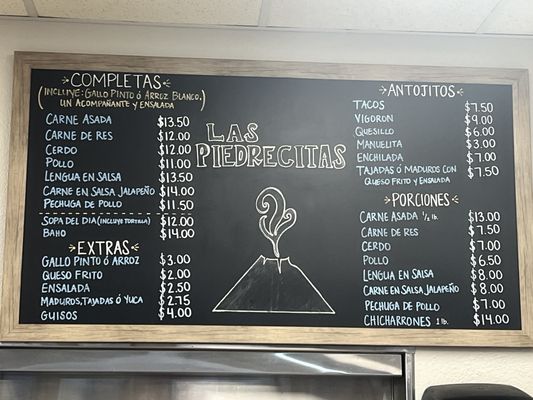 COMPLETAS
(INCLUYE: GALLO PINTO ó ARROZ BLANCO,
UN ACOMPAÑANTE Y ENSALADA)
CARNE ASADA $13.50
CARNE DE RES $12.00
CERDO $12.00
POLLO $11.00
LENGUA EN SALSA $13.50
CARNE EN SALSA JALAPEÑO $14.00
PECHUGA DE POLLO $11.50
SOPA DEL DIA (INCLUYE TORTILLA) $12.00
BAHO $14.00
EXTRAS
GALLO PINTO ó ARROZ $3.00
QUESO FRITO $2.00
ENSALADA $2.50
MADUROS, TAJADAS ó YUCA $2.75
GUISOS $4.00
LAS
PIEDRECITAS
ANTOJITOS
TACOS $7.50
VIGORON $9.00
QUESILLO $6.00
MANUELITA $3.00
ENCHILADA $7.00
TAJADAS ó MADUROS CON $7.50
QUESO FRITO Y ENSALADA
PORCIONES
CARNE ASADA 1/2 lb. $13.00
CARNE DE RES $7.50
CERDO $7.00
POLLO $6.50
LENGUA EN SALSA $8.00
CARNE EN SALSA JALAPEÑO $8.00
PECHUGA DE POLLO $7.00
CHICHARRONES 1 lb. $14.00